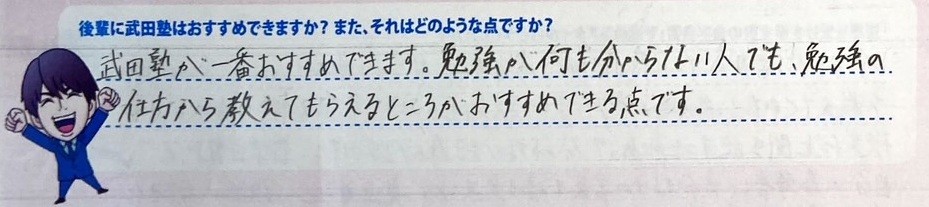 後輩に武田塾はおすすめできますか？また、それはどのような点ですか？
武田塾が一番おすすめできます。勉強が何も分からない人でも、勉強の
仕方から教えてもらえるところがおすすめできる点です。